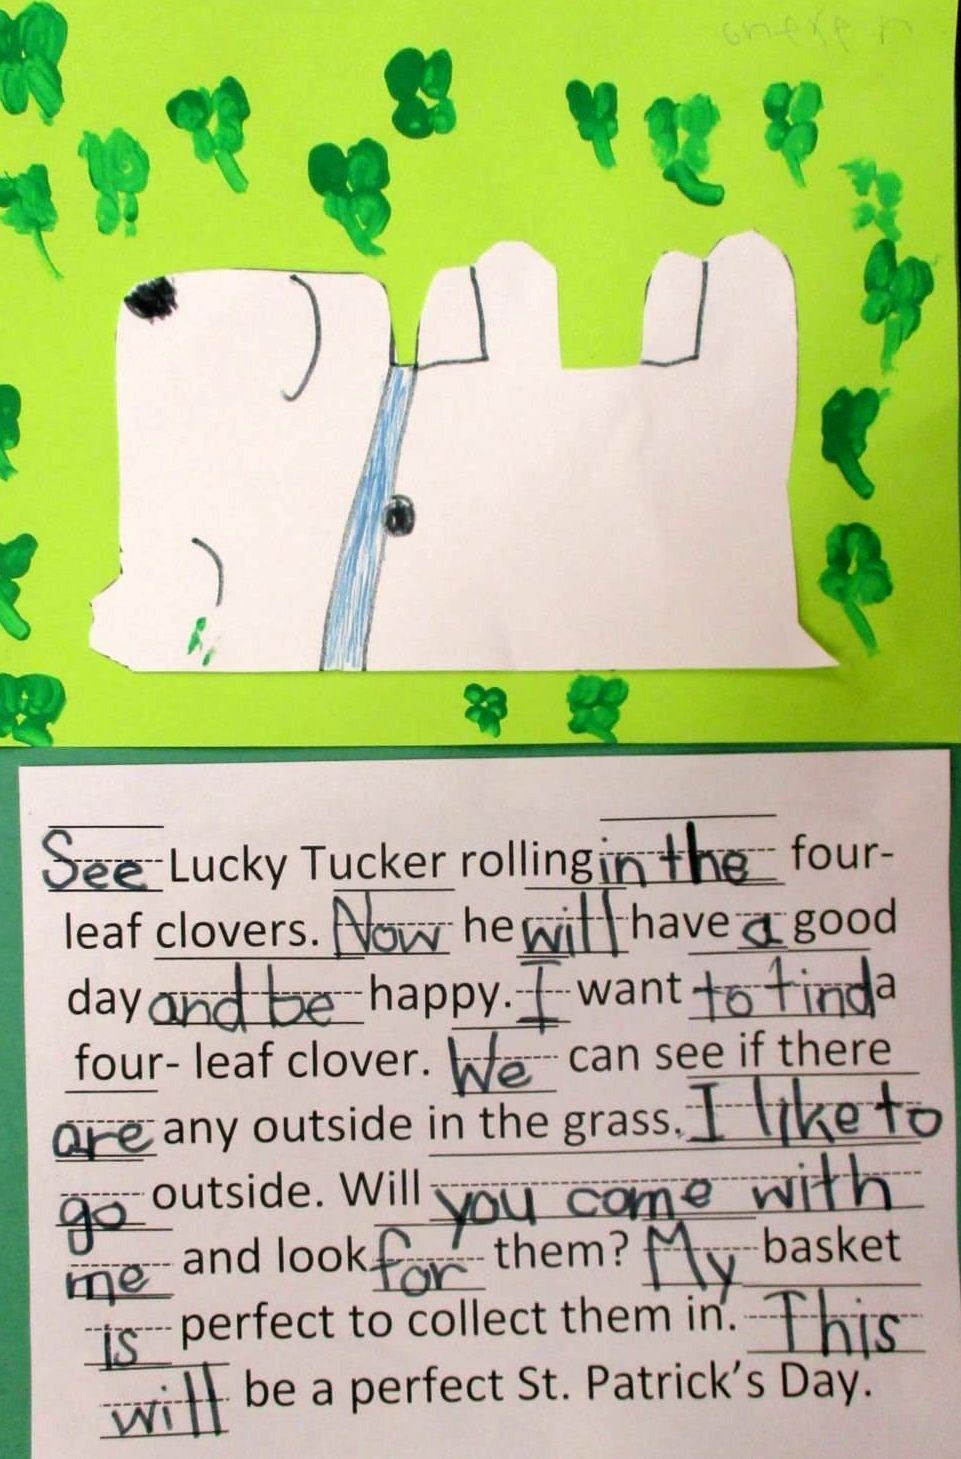 See Lucky Tucker rolling in the four-
leaf clovers. Now he will have a good
day and be happy. I want to find a
four- leaf clover. We can see if there
are any outside in the grass. I like to
go outside. Will you come with
me and look for them? My basket
is perfect to collect them in. This
will be a perfect St. Patrick's Day.